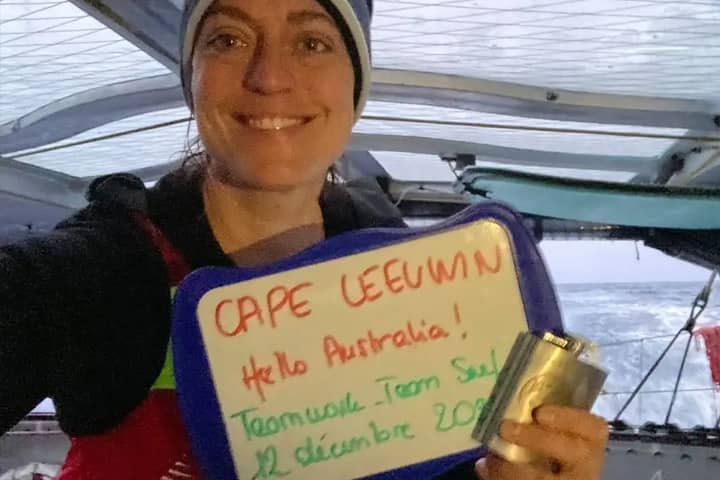 CAPE LEEUWIN
Hello Australia!
Teamwork - Team Snef
12 décembre 20